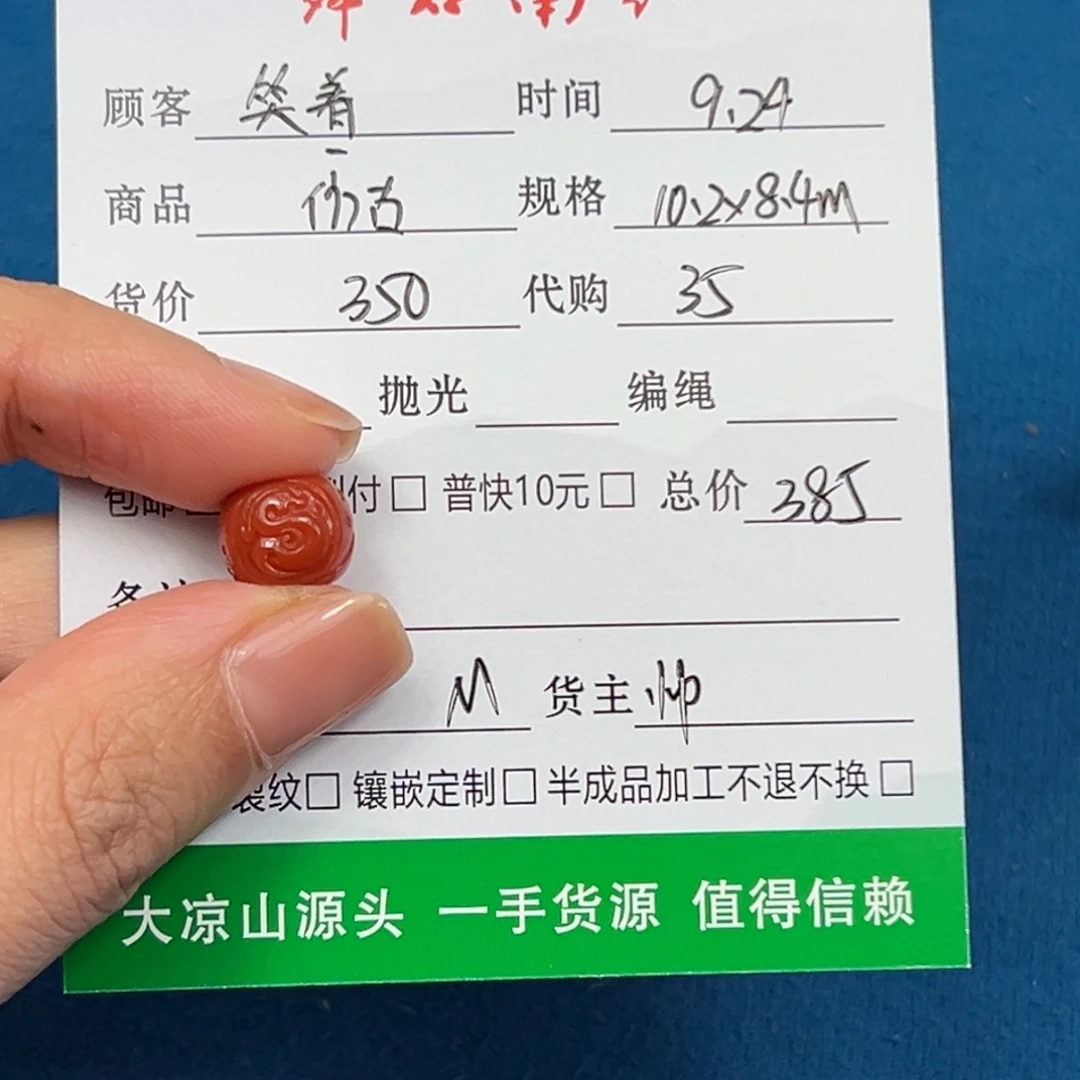 顾客 笑着 时间 9.24
商品 仿古 规格 10.2x8.4m
货价 350 代购 35
抛光 编绳
包邮 到付□ 普快10元□ 总价 385
M 货主 帅
裂纹□ 镶嵌定制□ 半成品加工不退不换□
大凉山源头 一手货源 值得信赖